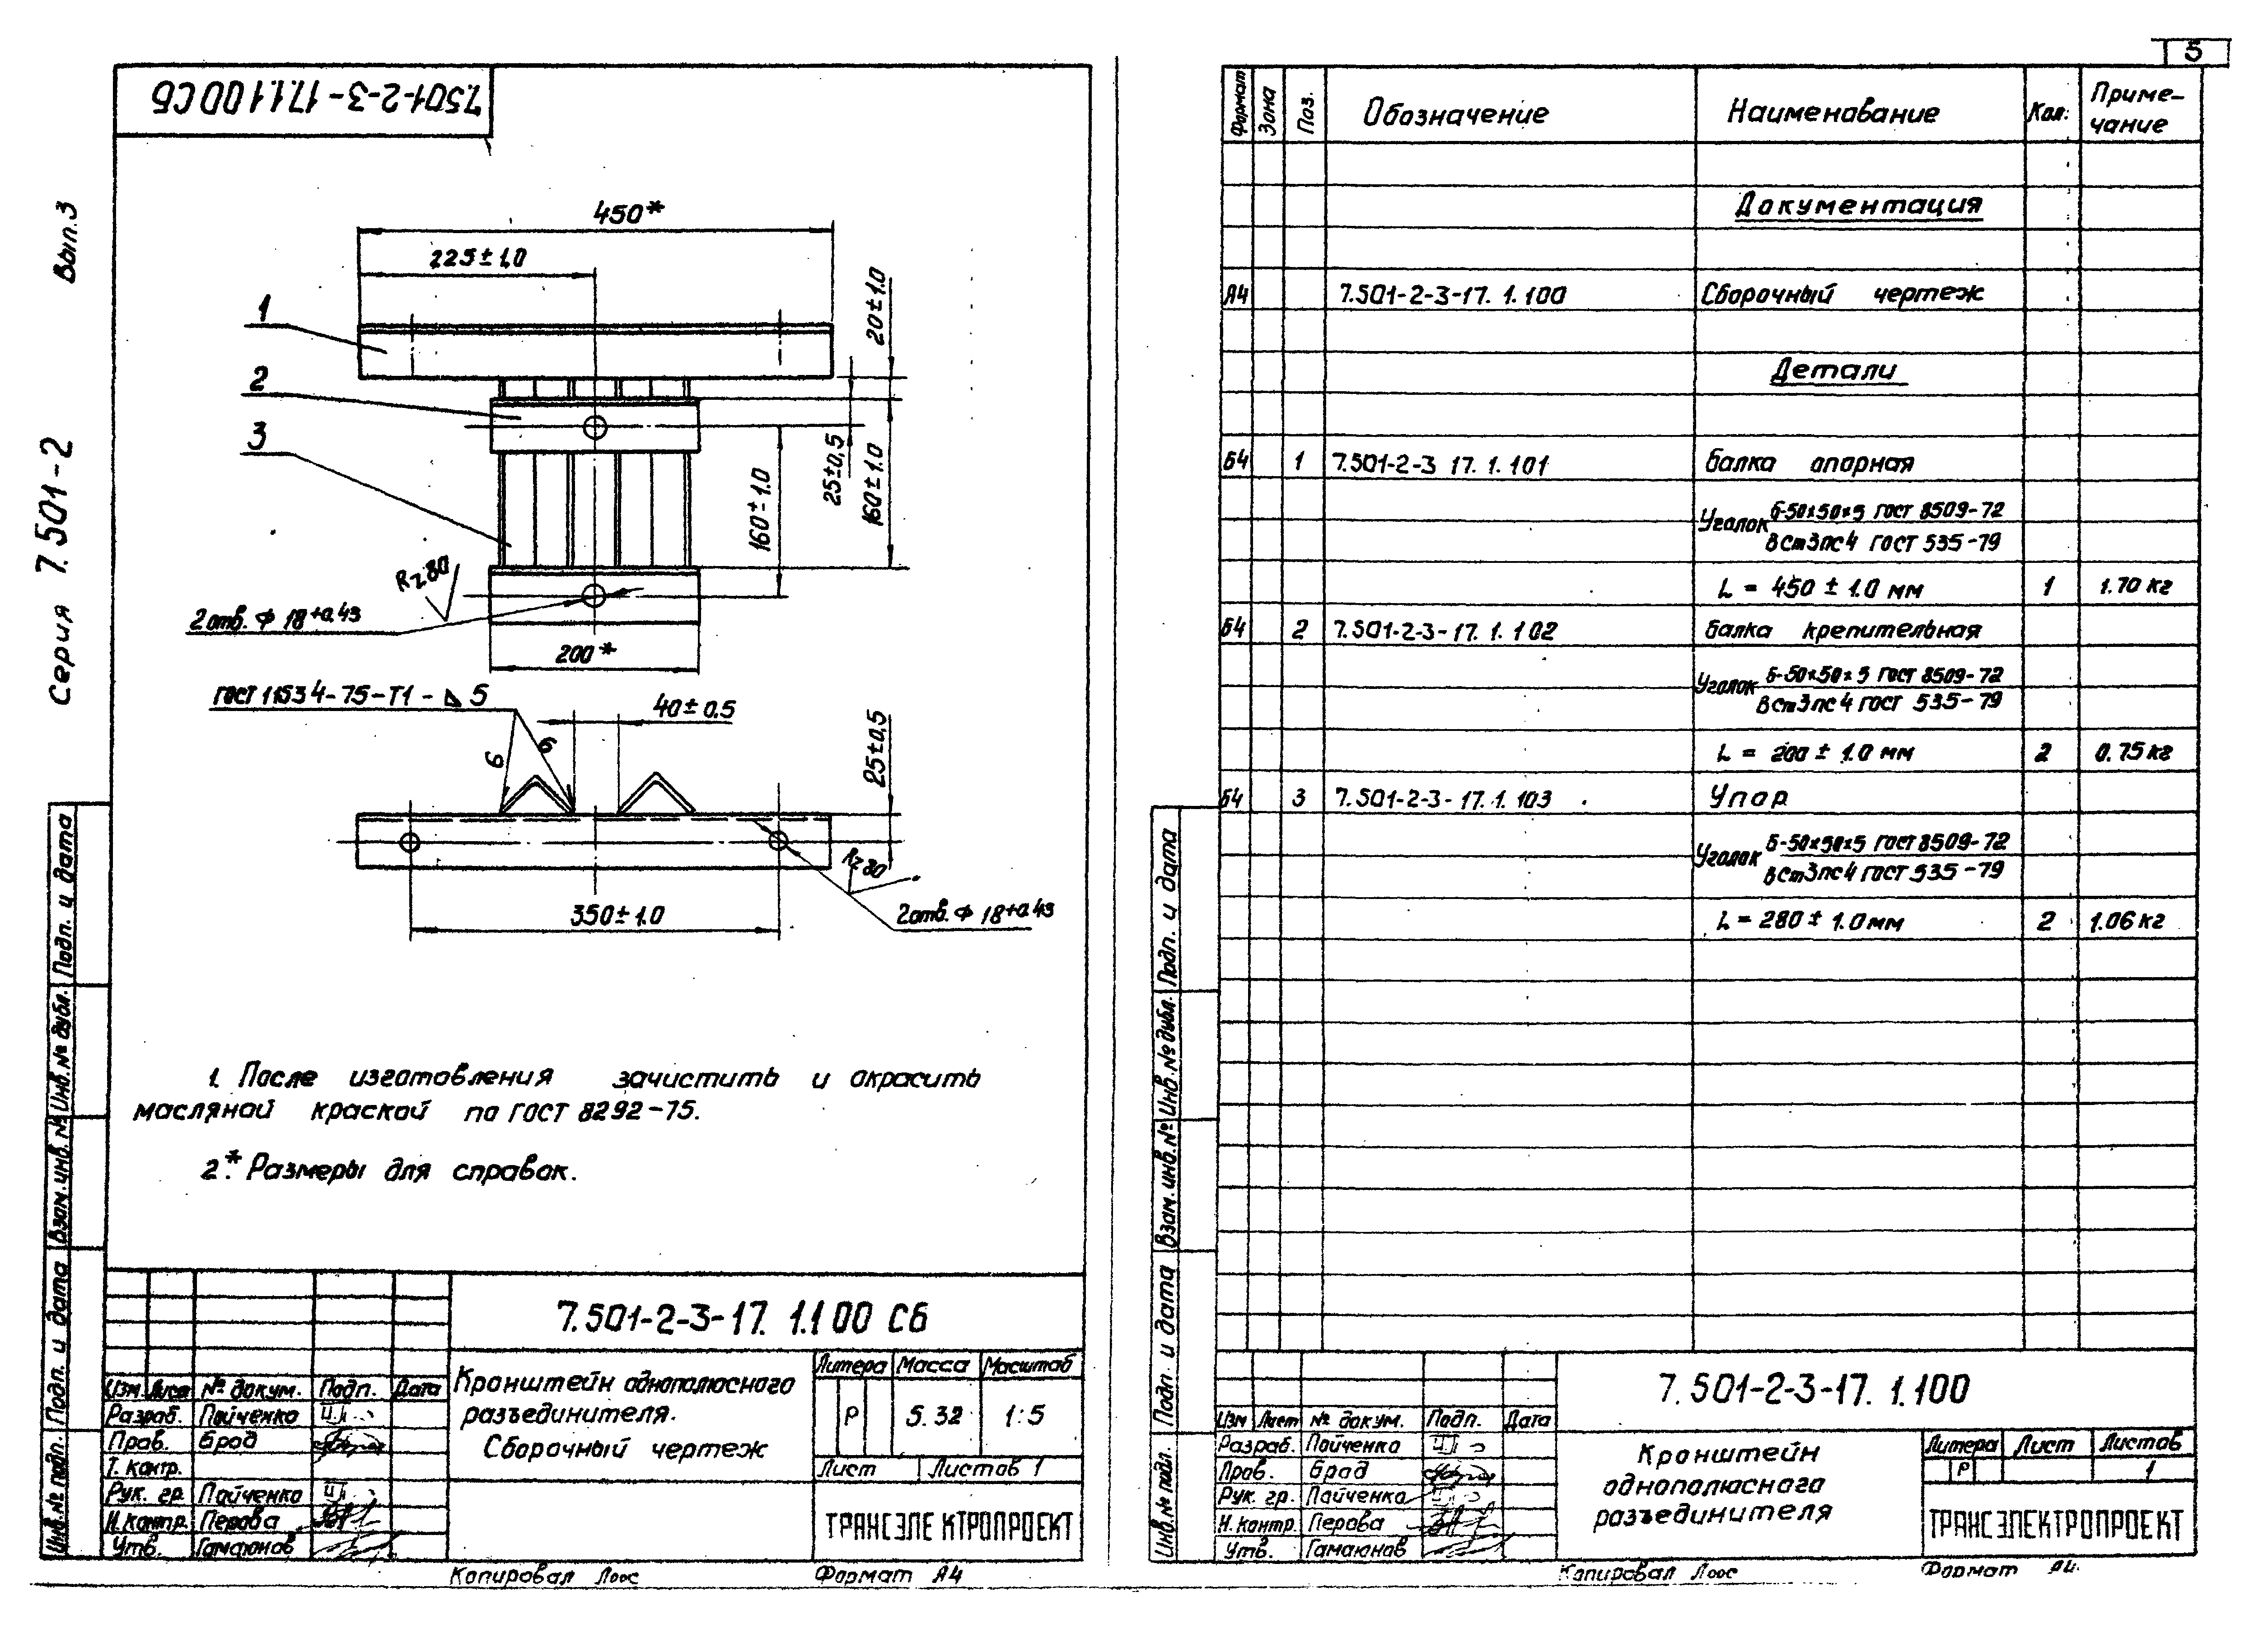 7.501-2-3-17.1.100 СБ
Серия 7.501-2 Вып.3
450*
225±1.0
20±1.0
1
2
3
25±0,5
160±1.0
160±1.0
Rz80
2 отв. Ф 18+0.43
200*
ГОСТ 11534-75-Т1-⊿ 5
6
6
40±0.5
25±0,5
Rz80
2 отв. Ф 18+0.43
350±1.0
1. После изготовления зачистить и окрасить
масляной краской по ГОСТ 8292-75.
2.* Размеры для справок.
Подп. и дата
Инв.№ дубл.
Взам.инв.№
Подп. и дата
Инв.№ подл.
7.501-2-3-17. 1.100 Сб
Изм. Лист № докум. Подп. Дата
Разраб. Пайченко
Пров. Брод
Т. контр.
Рук. гр. Пайченко
Н.контр. Перова
Утв. Гамаюнов
Кронштейн однополюсного
разъединителя.
Сборочный чертеж
Литера Масса Масштаб
Р 5.32 1:5
Лист Листов 1
ТРАНСЭЛЕКТРОПРОЕКТ
Копировал Лоос Формат А4
5
Формат Зона Поз. Обозначение Наименование Кол. Приме-
чание
Документация
А4 7.501-2-3-17. 1.100 Сборочный чертеж
Детали
Б4 1 7.501-2-3 17. 1. 101 Балка опорная
Уголок Б-50х50х5 ГОСТ 8509-72
ВСт3пс4 ГОСТ 535-79
L = 450 ± 1.0 мм 1 1.70 кг
Б4 2 7.501-2-3-17. 1. 102 Балка крепительная
Уголок Б-50х50х5 ГОСТ 8509-72
ВСт3пс4 ГОСТ 535-79
L = 200 ± 1.0 мм 2 0.75 кг
Б4 3 7.501-2-3-17. 1. 103 Упор
Уголок Б-50х50х5 ГОСТ 8509-72
ВСт3пс4 ГОСТ 535-79
L = 280 ± 1.0 мм 2 1.06 кг
Подп. и дата
Инв.№ дубл.
Взам.инв.№
Подп. и дата
Инв.№ подл.
7.501-2-3-17. 1.100
Изм Лист № докум. Подп. Дата
Разраб. Пайченко
Пров. Брод
Рук. гр. Пайченко
Н.контр. Перова
Утв. Гамаюнов
Кронштейн
однополюсного
разъединителя
Литера Лист Листов
Р 1
ТРАНСЭЛЕКТРОПРОЕКТ
Копировал Лоос Формат А4